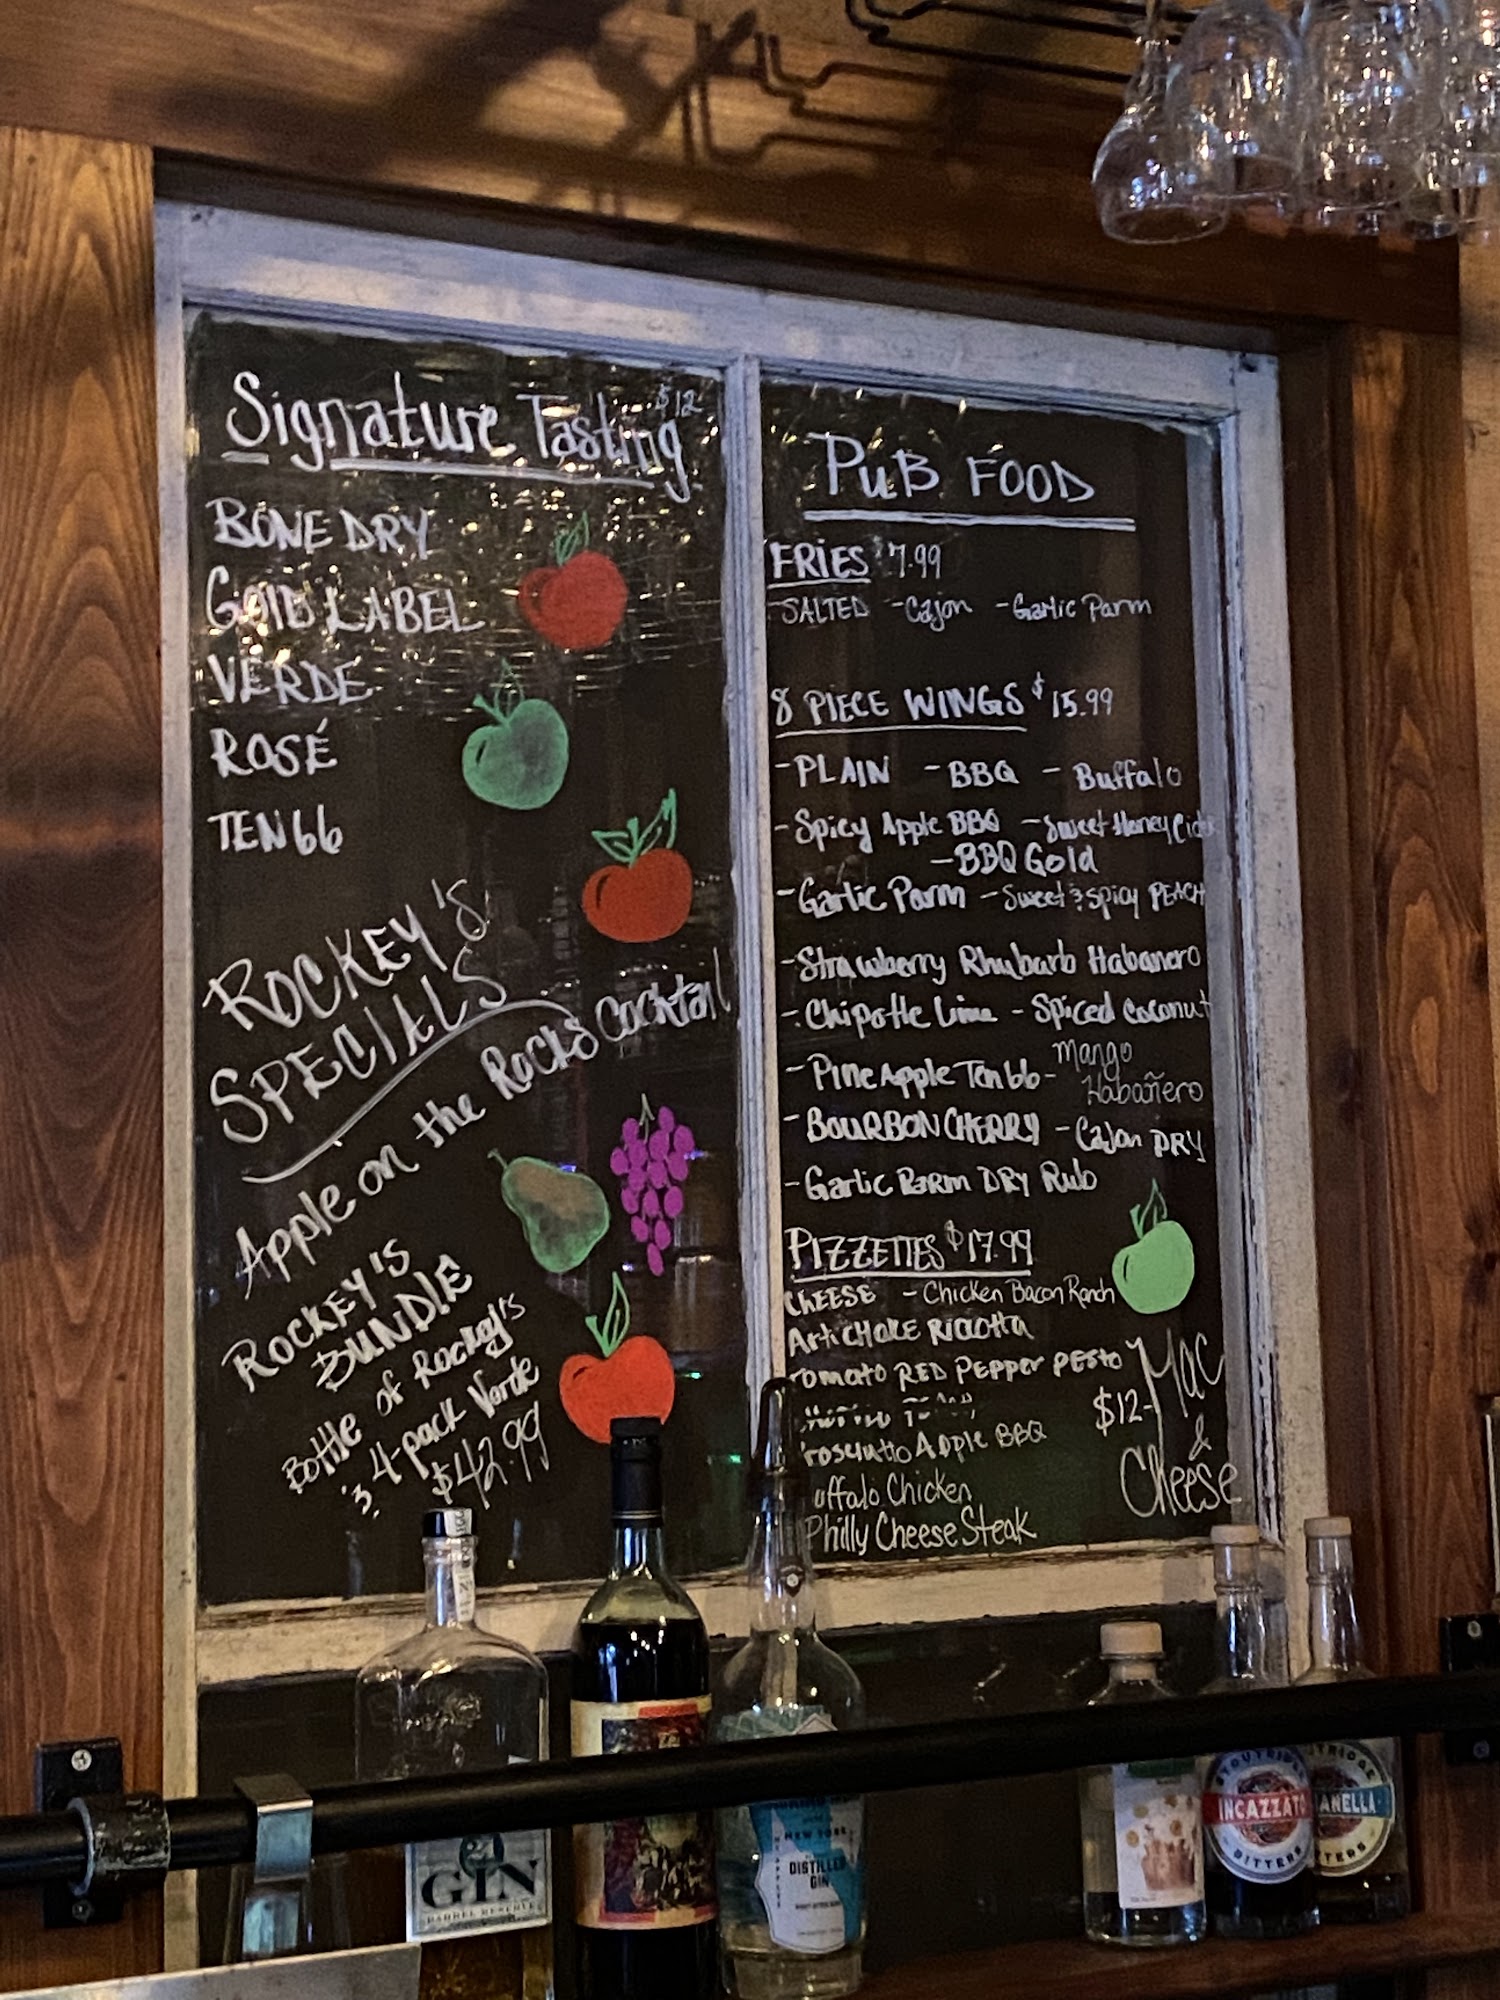 Signature Tasting $12
BONE DRY
GOLD LABEL
VERDE
ROSÉ
TEN66
ROCKEY'S
SPECIALS
Apple on the Rocks Cocktail
ROCKEY'S
BUNDLE
Bottle of Rockey's
& 4-pack Verde
$42.99
PUB FOOD
FRIES $7.99
-SALTED -Cajon -Garlic Parm
8 PIECE WINGS $15.99
-PLAIN -BBQ - Buffalo
-Spicy Apple BBQ -Sweet Honey Cider
-BBQ Gold
-Garlic Parm -Sweet & Spicy PEACH
-Strawberry Rhubarb Habanero
-Chipotle Lime - Spiced Coconut
-PineApple Ten66 -Mango
Habañero
-BOURBON CHERRY -Cajon DRY
-Garlic Parm DRY Rub
PIZZETTES $17.99
CHEESE -Chicken Bacon Ranch
ArtiCHOKE RICCOTTA
Tomato RED PEPPer PESto
rosciutto Apple BBQ
uffalo Chicken
Philly Cheese Steak
Mac
$12-
&
Cheese
GIN
BARREL RESERVE
NEW YORK
DISTILLED
GIN
STOUTRIDGE
INCAZZATO
BITTERS
TRIDGE
ANELLA
TERS